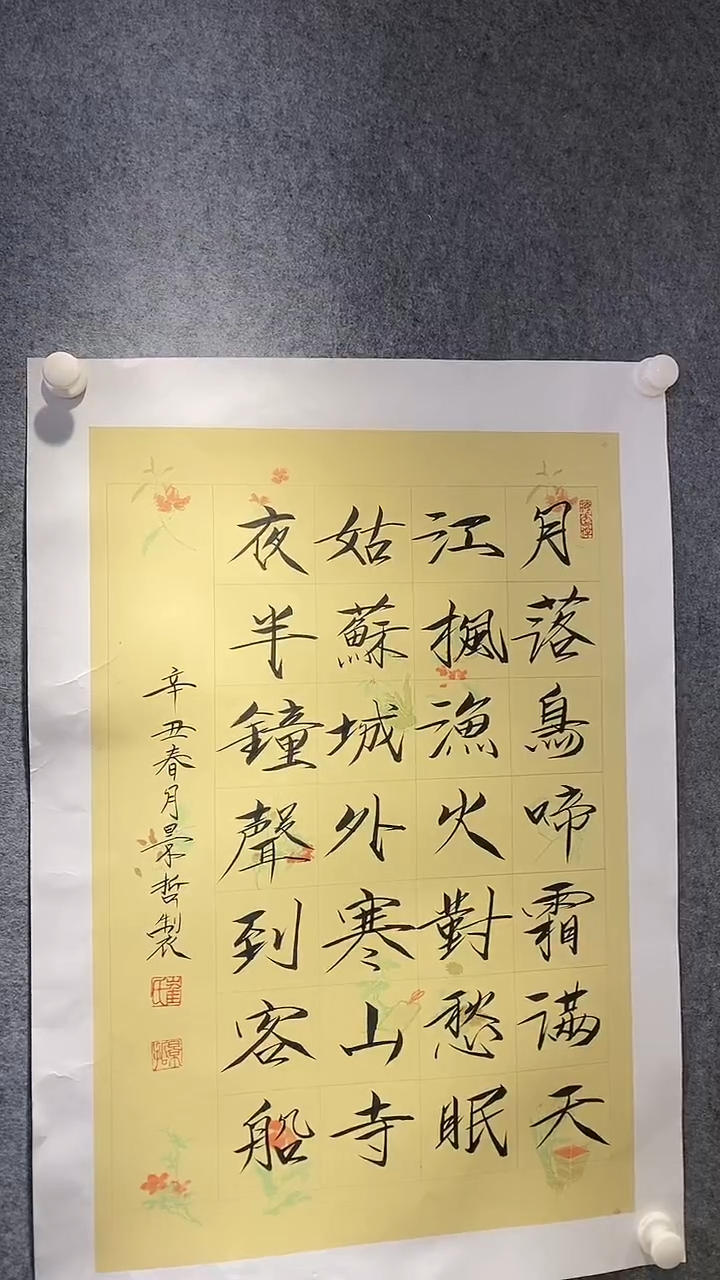 月落烏啼霜满天
江楓漁火對愁眠
姑蘇城外寒山寺
夜半鐘聲到客船
辛丑春月景哲製